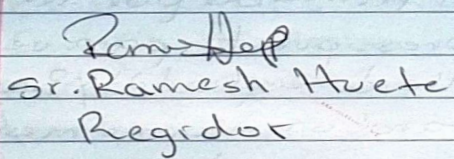 Sr. Ramesh Huete
Regidor